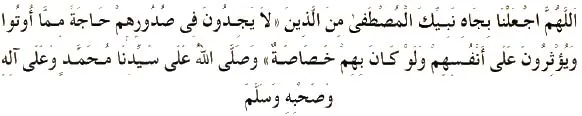 اللَّهُمَّ اجْعَلْنَا بِجَاهِ نَبِيِّكَ الْمُصْطَفَىٰ مِنَ الَّذِينَ «لَا يَجِدُونَ فِى صُدُورِهِمْ حَاجَةً مِمَّا أُوتُوا
وَيُؤْثِرُونَ عَلَى أَنْفُسِهِمْ وَلَوْ كَانَ بِهِمْ خَصَاصَةٌ» وَصَلَّى اللهُ عَلَى سَيِّدِنَا مُحَمَّدٍ وَعَلَى آلِهِ
وَصَحْبِهِ وَسَلَّمَ